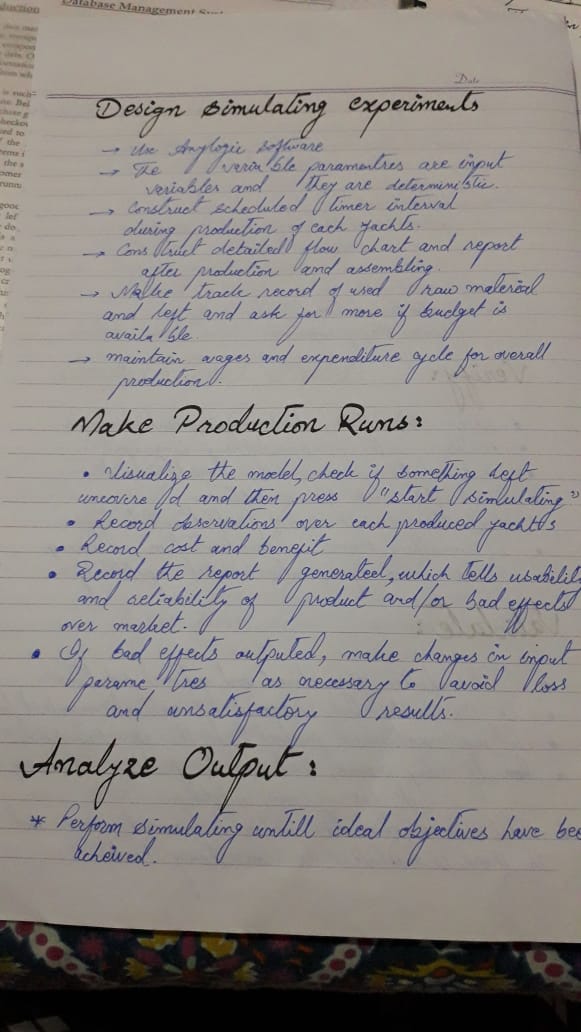 Database Management
Date
Design simulating experiments
→ Use Anylogic software
→ The varia ble paramentres are input
variables and they are deterministic.
→ Construct scheduled timer interval
during production of each yachts.
→ Cons truct detailed flow chart and report
after production and assembling.
→ Make track record of used raw material
and left and ask for more if budget is
availa ble.
→ maintain wages and expenditure cycle for overall
production.
Make Production Runs:
• Visualize the model, check if something left
uncovere d and then press "start simulating"
• Record observations over each produced yachts
• Record cost and benefit
• Record the report generated, which tells usabilit
and reliability of product and/or bad effects
over market.
• If bad effects outputed, make changes in input
parame tres as necessary to avoid loss
and unsatisfactory results.
Analyze Output:
* Perform simulating untill ideal objectives have bee
acheived.